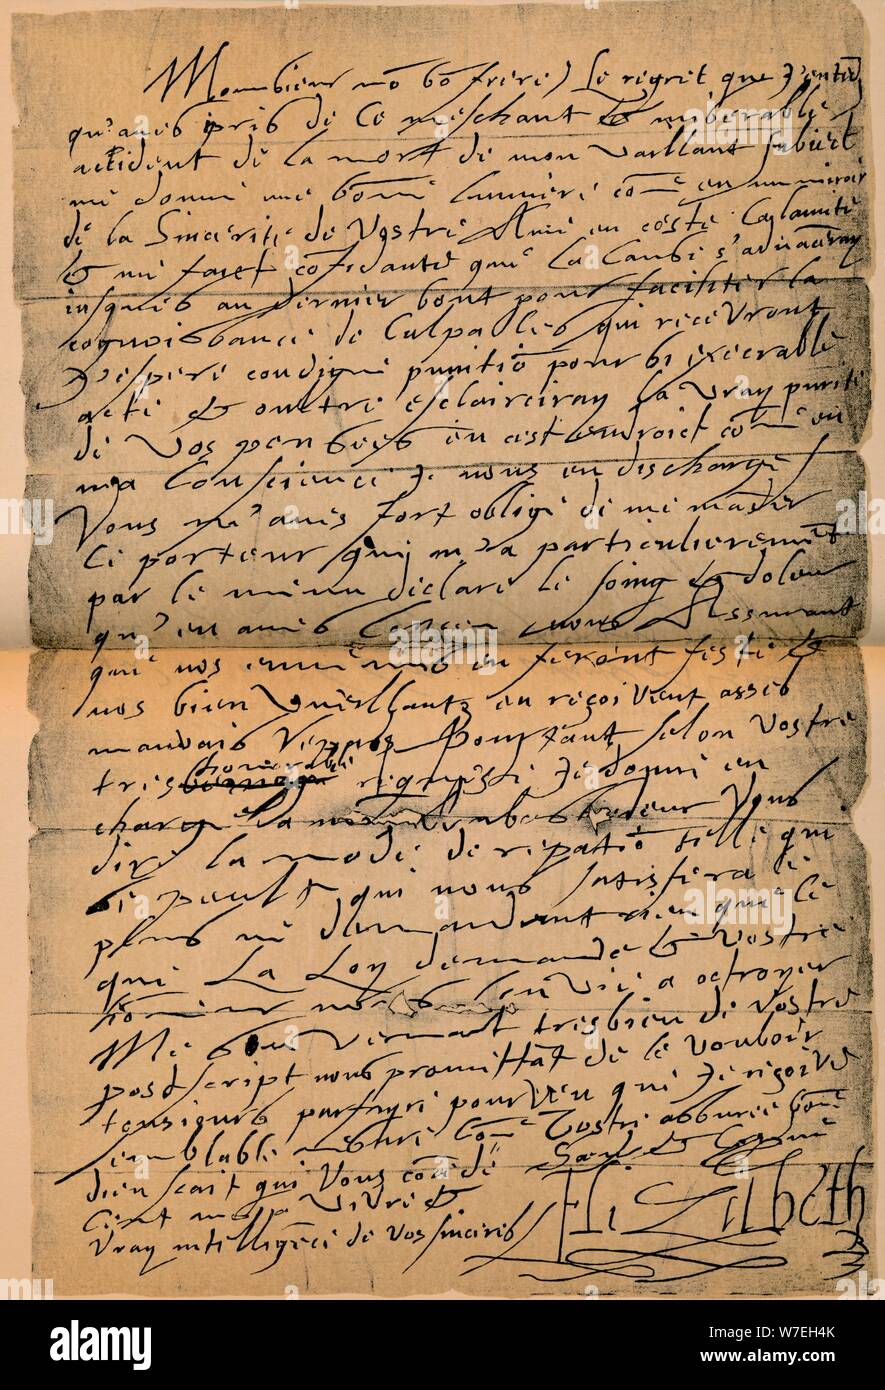 Monsieur mō bō frere Le regret que J'entēd
qu'aues pris de Ce meschant & miserable
accident de la mort de mon vaillant subiect
me donne une bonne lumiere cōme en un miroir
de la Sincerite de Vostre Amie en ceste Calamite
& me faict cōfidante que la Cause s'aduācera
iusques au dernier bout pour faciliter la
cognoissance de Culpables qui recevront
J'espere condigne punitiō pour si execrable
acte & oultre esclairciray la vray purite
de Vos pensees en cest endroict cōme en
ma Conscience Je vous en discharge
Vous m'aues fort oblige de me māder
Ce porteur qui m'a particulieremēt
par le menu declare le soing & doleur
qu'en aues vous Assurant
que nos ennemis en feront feste &
nos bien Vueillants en reçoivent asses
mauvais Pourtant selon Vostre
tres honorable requeste Je donne en
charge a mon Embassadeur Vous
dire la mode de repatiō telle qui
se peult qui nous satisfera
plus ne demandant rien que Ce
que La Loy demande & Vostre
honneur a octroyer
Me souvenant tresbien de Vostre
postscript nous promittāt de le Vouloir
tousiours pourveu qui Je reçoive
semblable mesure Cōme Vostre assuree bonne
Sœur & Cousine
dieu scait qui Vous
Vivre &
Vray intelligēce de Vos sinceres
Elizabeth R
alamy stock photo
W7EH4K
www.alamy.com